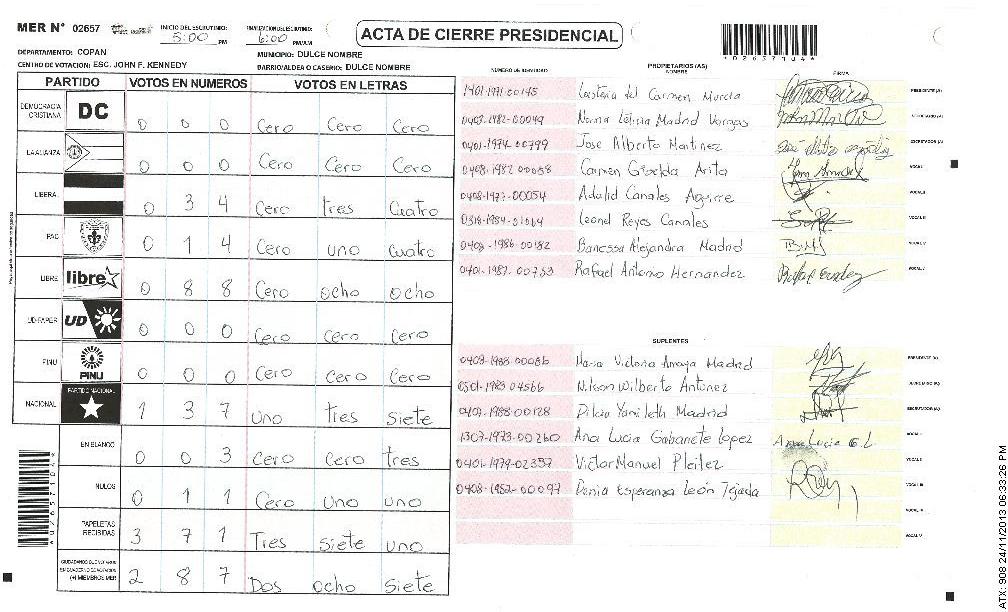 MER N° 02657
INICIO DEL ESCRUTINIO:
5:00 PM
FINALIZACION DEL ESCRUTINIO:
6:00 PM/AM
ACTA DE CIERRE PRESIDENCIAL
*02657104*
DEPARTAMENTO: COPAN
MUNICIPIO: DULCE NOMBRE
CENTRO DE VOTACION: ESC. JOHN F. KENNEDY
BARRIO/ALDEA O CASERIO: DULCE NOMBRE
PARTIDO VOTOS EN NUMEROS VOTOS EN LETRAS
DEMOCRACIA CRISTIANA DC 0 0 0 Cero Cero Cero
LA ALIANZA 0 0 0 Cero Cero Cero
LIBERAL 0 3 4 Cero tres Cuatro
PAC 0 1 4 Cero uno cuatro
LIBRE libre 0 8 8 Cero ocho ocho
UD-FAPER UD 0 0 0 Cero Cero Cero
PINU PINU 0 0 0 Cero Cero Cero
NACIONAL PARTIDO NACIONAL 1 3 7 Uno tres siete
EN BLANCO 0 0 3 Cero Cero tres
NULOS 0 1 1 Cero uno uno
PAPELETAS RECIBIDAS 3 7 1 Tres siete uno
CIUDADANOS QUE VOTARON
(+) MIEMBROS MER 2 8 7 Dos ocho siete
NUMERO DE IDENTIDAD PROPIETARIOS (AS) NOMBRE FIRMA
1401-1971-00145 del Carmen Murcia PRESIDENTE (A)
0408-1982-00049 Norma Leticia Madrid Vargas SECRETARIO (A)
0401-1974-00799 Jose Alberto Martinez ESCRUTADOR (A)
0408-1982-00058 Carmen Griselda Arita VOCAL I
0408-1977-00054 Adalid Canales Aguirre VOCAL II
0318-1984-01064 Leonel Reyes Canales VOCAL III
0408-1986-00182 Banessa Alejandra Madrid VOCAL IV
0401-1987-00753 Rafael Antonio Hernandez VOCAL V
SUPLENTES
0408-1988-00086 Maria Victoria Amaya Madrid PRESIDENTE (A)
0501-1985-04566 Nilson Wilberto Antunez SECRETARIO (A)
0408-1988-00128 Dilcia Yamileth Madrid ESCRUTADOR (A)
1307-1973-00260 Ana Lucia Gabanete Lopez Ana Lucia G.L VOCAL I
0401-1979-02357 Victor Manuel Pleitez VOCAL II
0408-1982-00097 Dania Esperanza León Tejada VOCAL III
VOCAL IV
VOCAL V
*02657104*
ATX: 908 24/11/2013 06:33:26 PM